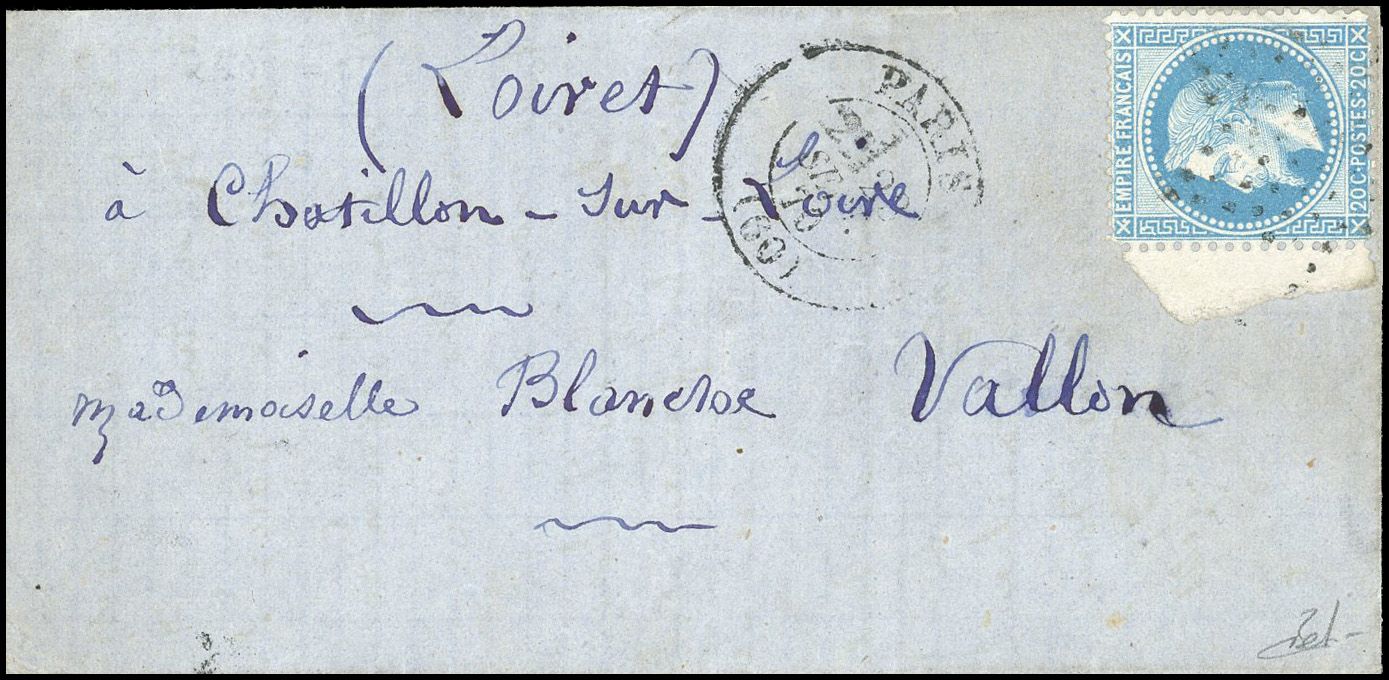 (Loiret)
à Chatillon - sur - Loire
Mademoiselle Blanche Vallon
PARIS
(60)
EMPIRE FRANÇAIS
20 C POSTES 20 C